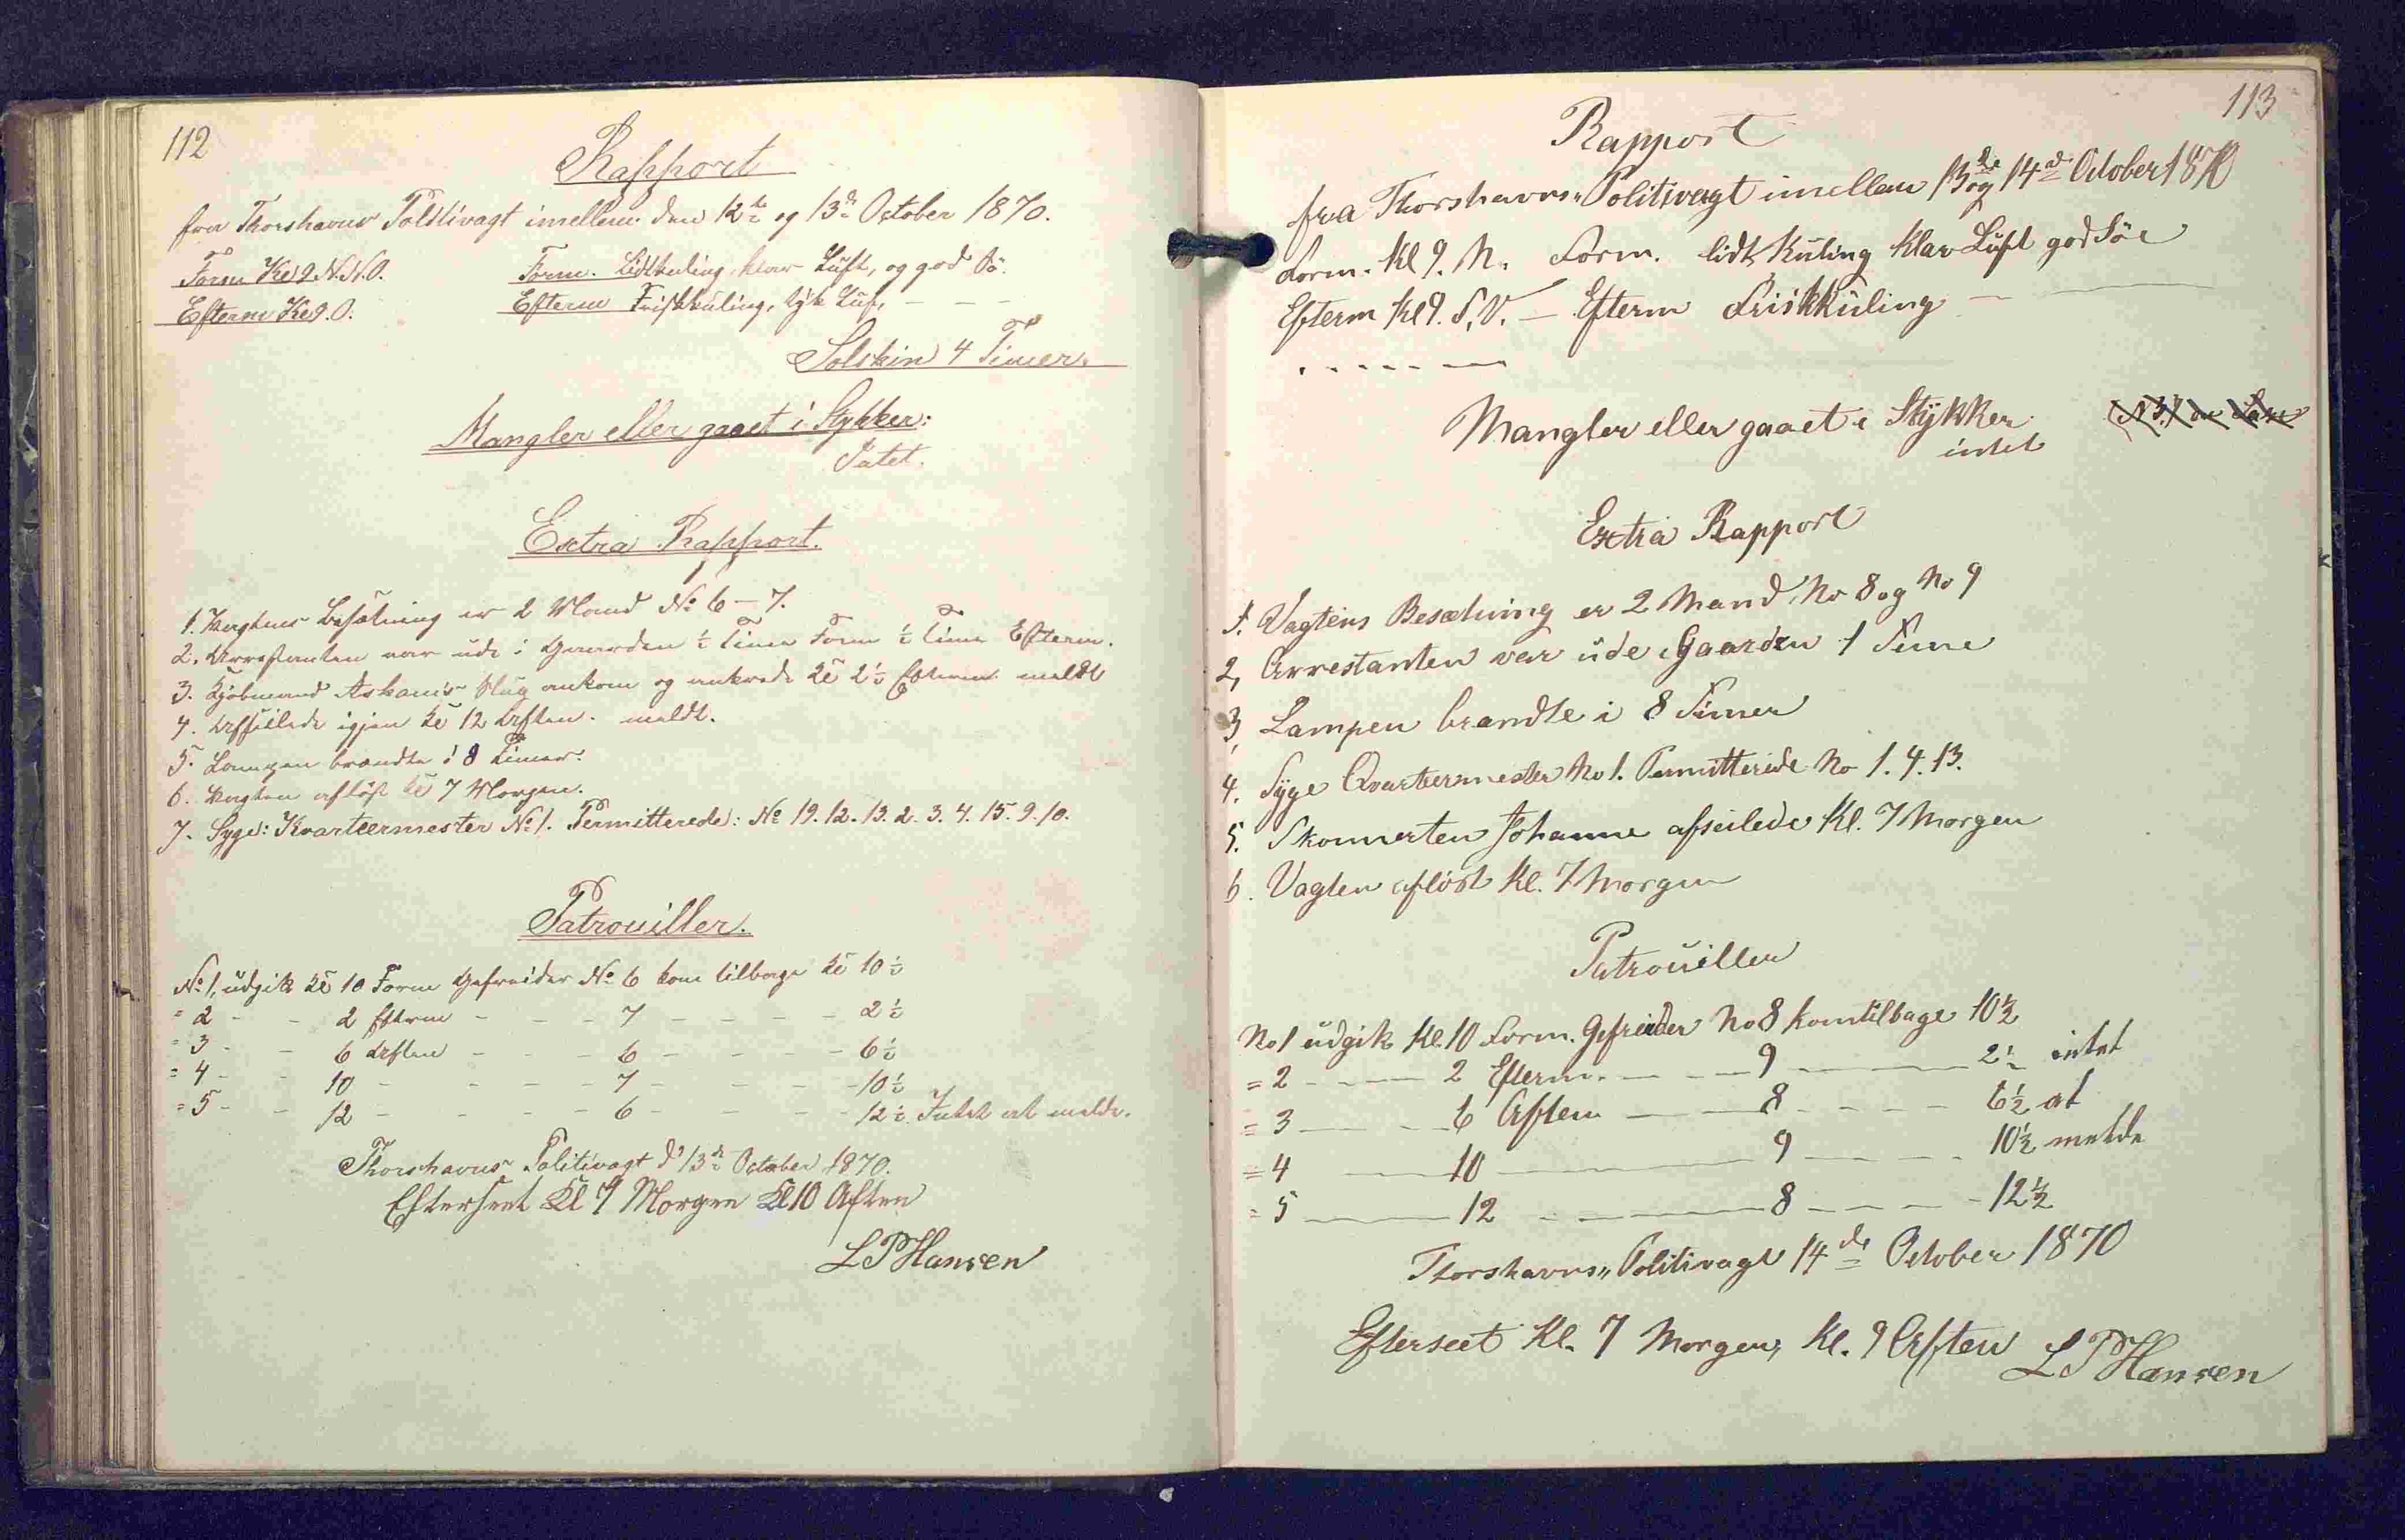 112
Rapport
fra Thorshavns Politivagt imellem den 12te og 13de October 1870.
Form Kl 9. N.N.O. Form. Lidt kuling, klar Luft, og god Sö.
Efterm Kl 9. O. Efterm Friskkuling, tÿk Luft, - - -
Solskin 4 Timer.
Mangler eller gaaet i Stykker:
Intet.
Extra Rapport.
1. Vagtens Besætning er 2 Mand No 6 - 7.
2. Arrestanten var ude i Gaarden ½ Time Form ½ Time Efterm.
3. Kjöbmand Askam's Slup ankom og ankrede Kl 2½ Efterm meldt
4. Afseilede igjen Kl 12 Aften. meldt.
5. Lampen brændte i 8 Timer.
6. Vagten aflöst Kl 7 Morgen.
7. Syge: Kvarteermester No 1. Permitterede: No 19. 12. 13. 2. 3. 4. 15. 9. 10.
Patrouiller.
No 1, udgik Kl 10 Form Gefreider No 6 kom tilbage Kl 10½
= 2 - - 2 Efterm - - - 7 - - - - - 2½
= 3 - - 6 Aften - - - 6 - - - - - 6½
= 4 - - 10 - - - - 7 - - - - 10½
= 5 - - 12 - - - - 6 - - - - 12½. Intet at melde.
Thorshavns Politivagt d' 13de October 1870.
Efterseet Kl 7 Morgen Kl 10 Aften
L P Hansen
113
Rapport
fra Thorshavns" Politivagt imellem 13de og 14de October 1870
Form. Kl 9. N. Form. lidt Kuling Klar Luft god Söe
Efterm Kl 9. S,V. — Efterm Friskkuling — —
. - - - - - —
Mangler eller gaaet i Stÿkker
intet
Extra Rapport
1. Vagtens Besætning er 2 Mand, No 8 og No 9
2, Arrestanten var ude i Gaarden 1 Time
3, Lampen brændte i 8 Timer
4. Sÿge Qvarteermester No 1. Permitterede No 1. 4. 13.
5. Skonnerten Johanne afseilede Kl. 7 Morgen
6. Vagten aflöst Kl. 7 Morgen
Patrouiller
No 1 udgik Kl. 10 Form. Gefreider No 8 kom tilbage 10½
= 2 - - — 2 Efterm. — - — 9 - — — 2½ intet
= 3 — - - 6 Aften — — 8 - - - - 6½ at
= 4 — 10 — — 9 — - - - 10½ melde
= 5 — — 12 - - — — 8 - - - - 12½
Thorshavns" Politivagt 14de October 1870
Efterseet Kl. 7 Morgen, Kl. 9 Aften
L P Hansen